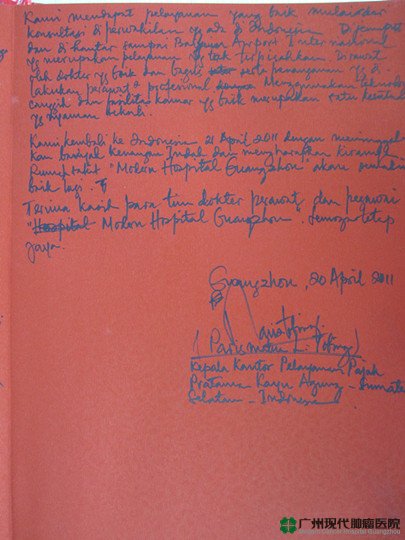 Kami mendapat pelayanan yang baik mulai dari
konsultasi di perwakilan yg ada di Indonesia. Dijemput
dan di hantar sampai Baiyun Airport International
yg merupakan pelayanan yg tak terpisahkan. Dirawat
oleh dokter yg baik dan bagus serta penanganan yg di
lakukan perawat2 profesional Menggunakan teknologi
canggih dan fasilitas kamar yg baik merupakan satu
yg nyaman sekali.
Kami kembali ke Indonesia 21 April 2011 dengan meninggal
kan banyak kenangan Indah dan mengharapkan kiranya
Rumah sakit "Modern Hospital Guangzhou" akan semakin
baik lagi.
Terima kasih para tim dokter perawat dan pegawai
"Hospital Modern Hospital Guangzhou". Semoga tetap
jaya.
Guangzhou, 20 April 2011
Kepala Kantor Pelayanan Pajak
Pratama Kayu Agung - Sumatera
Selatan - Indonesia
广州现代肿瘤医院